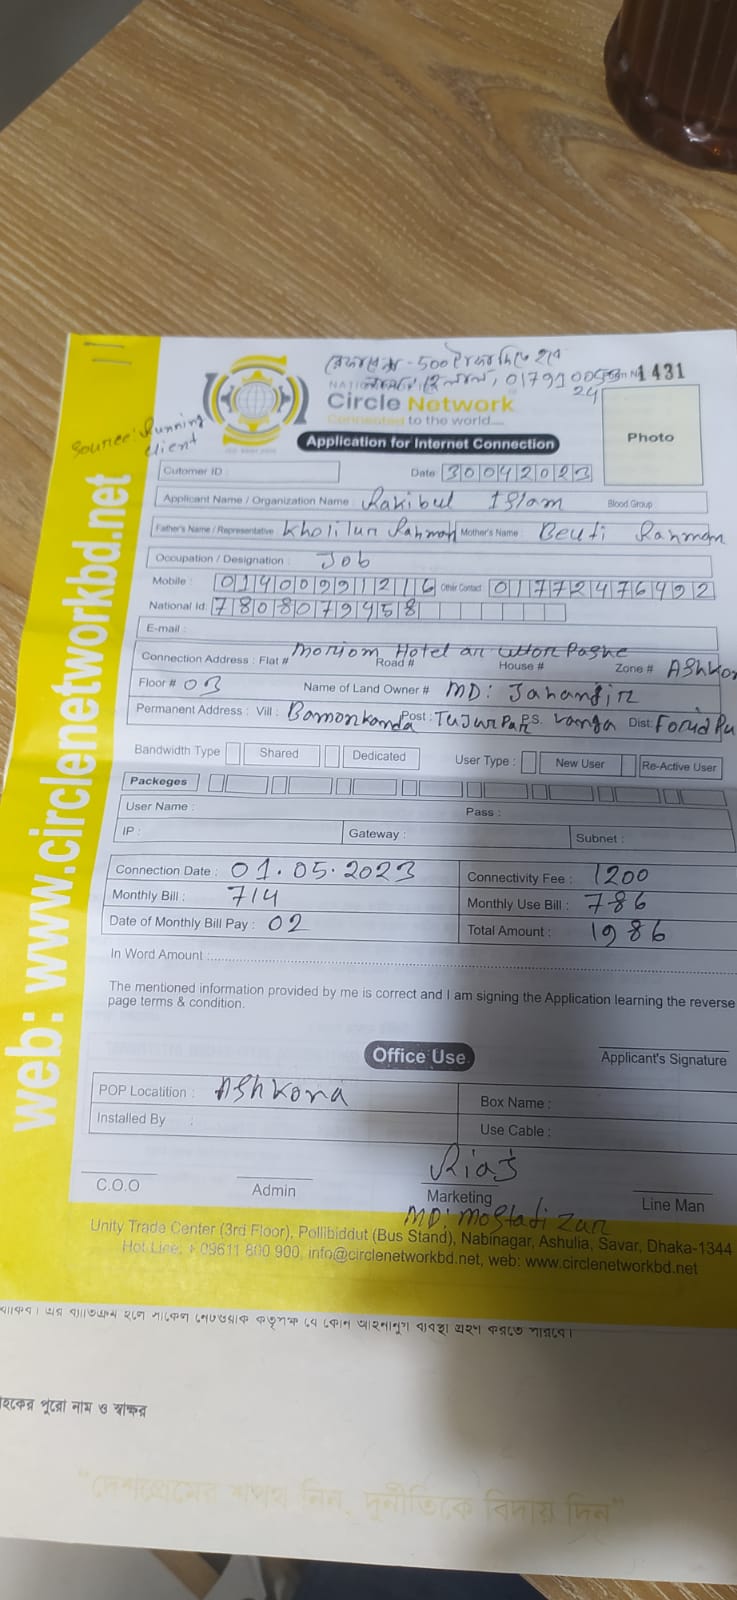 500 টাকা দিতে হবে
1431
Circle Network
Connected to the world....
Source: Running client
Application for Internet Connection
Photo
Cutomer ID :
Date : 30042023
Applicant Name / Organization Name : Rakibul Islam Blood Group :
Father's Name / Representative : Kholilur Rahman Mother's Name : Beuti Rahman
Occupation / Designation : Job
Mobile : 01400991216 Other Contact 01772476492
National Id: 7808079458
E-mail :
Connection Address : Flat # Moriom Hotel ar Uttor Pashe Road # House # Zone # Ashkon
Floor # 03 Name of Land Owner # MD: Jahangir
Permanent Address : Vill : Bamonkanda Post : P.S. Vanga Dist: Foridpu
Bandwidth Type Shared Dedicated User Type : New User Re-Active User
Packeges
User Name : Pass :
IP : Gateway : Subnet :
Connection Date : 01.05.2023 Connectivity Fee : 1200
Monthly Bill : 714 Monthly Use Bill : 786
Date of Monthly Bill Pay : 02 Total Amount : 1986
In Word Amount :
The mentioned information provided by me is correct and I am signing the Application learning the reverse
page terms & condition.
Office Use
Applicant's Signature
POP Locatition : Ashkona Box Name :
Installed By : Use Cable :
Riaj
C.O.O Admin Marketing Line Man
MD: Mostafizur
Unity Trade Center (3rd Floor), Pollibiddut (Bus Stand), Nabinagar, Ashulia, Savar, Dhaka-1344
Hot Line: + 09611 800 900, info@circlenetworkbd.net, web: www.circlenetworkbd.net
web: www.circlenetworkbd.net
থাকিব। এর ব্যতিক্রম হলে সার্কেল নেটওয়ার্ক কর্তৃপক্ষ যে কোন আইনানুগ ব্যবস্থা গ্রহণ করতে পারবে।
হকের পুরো নাম ও স্বাক্ষর
"দেশপ্রেমের শপথ নিন, দূর্নীতিকে বিদায় দিন"